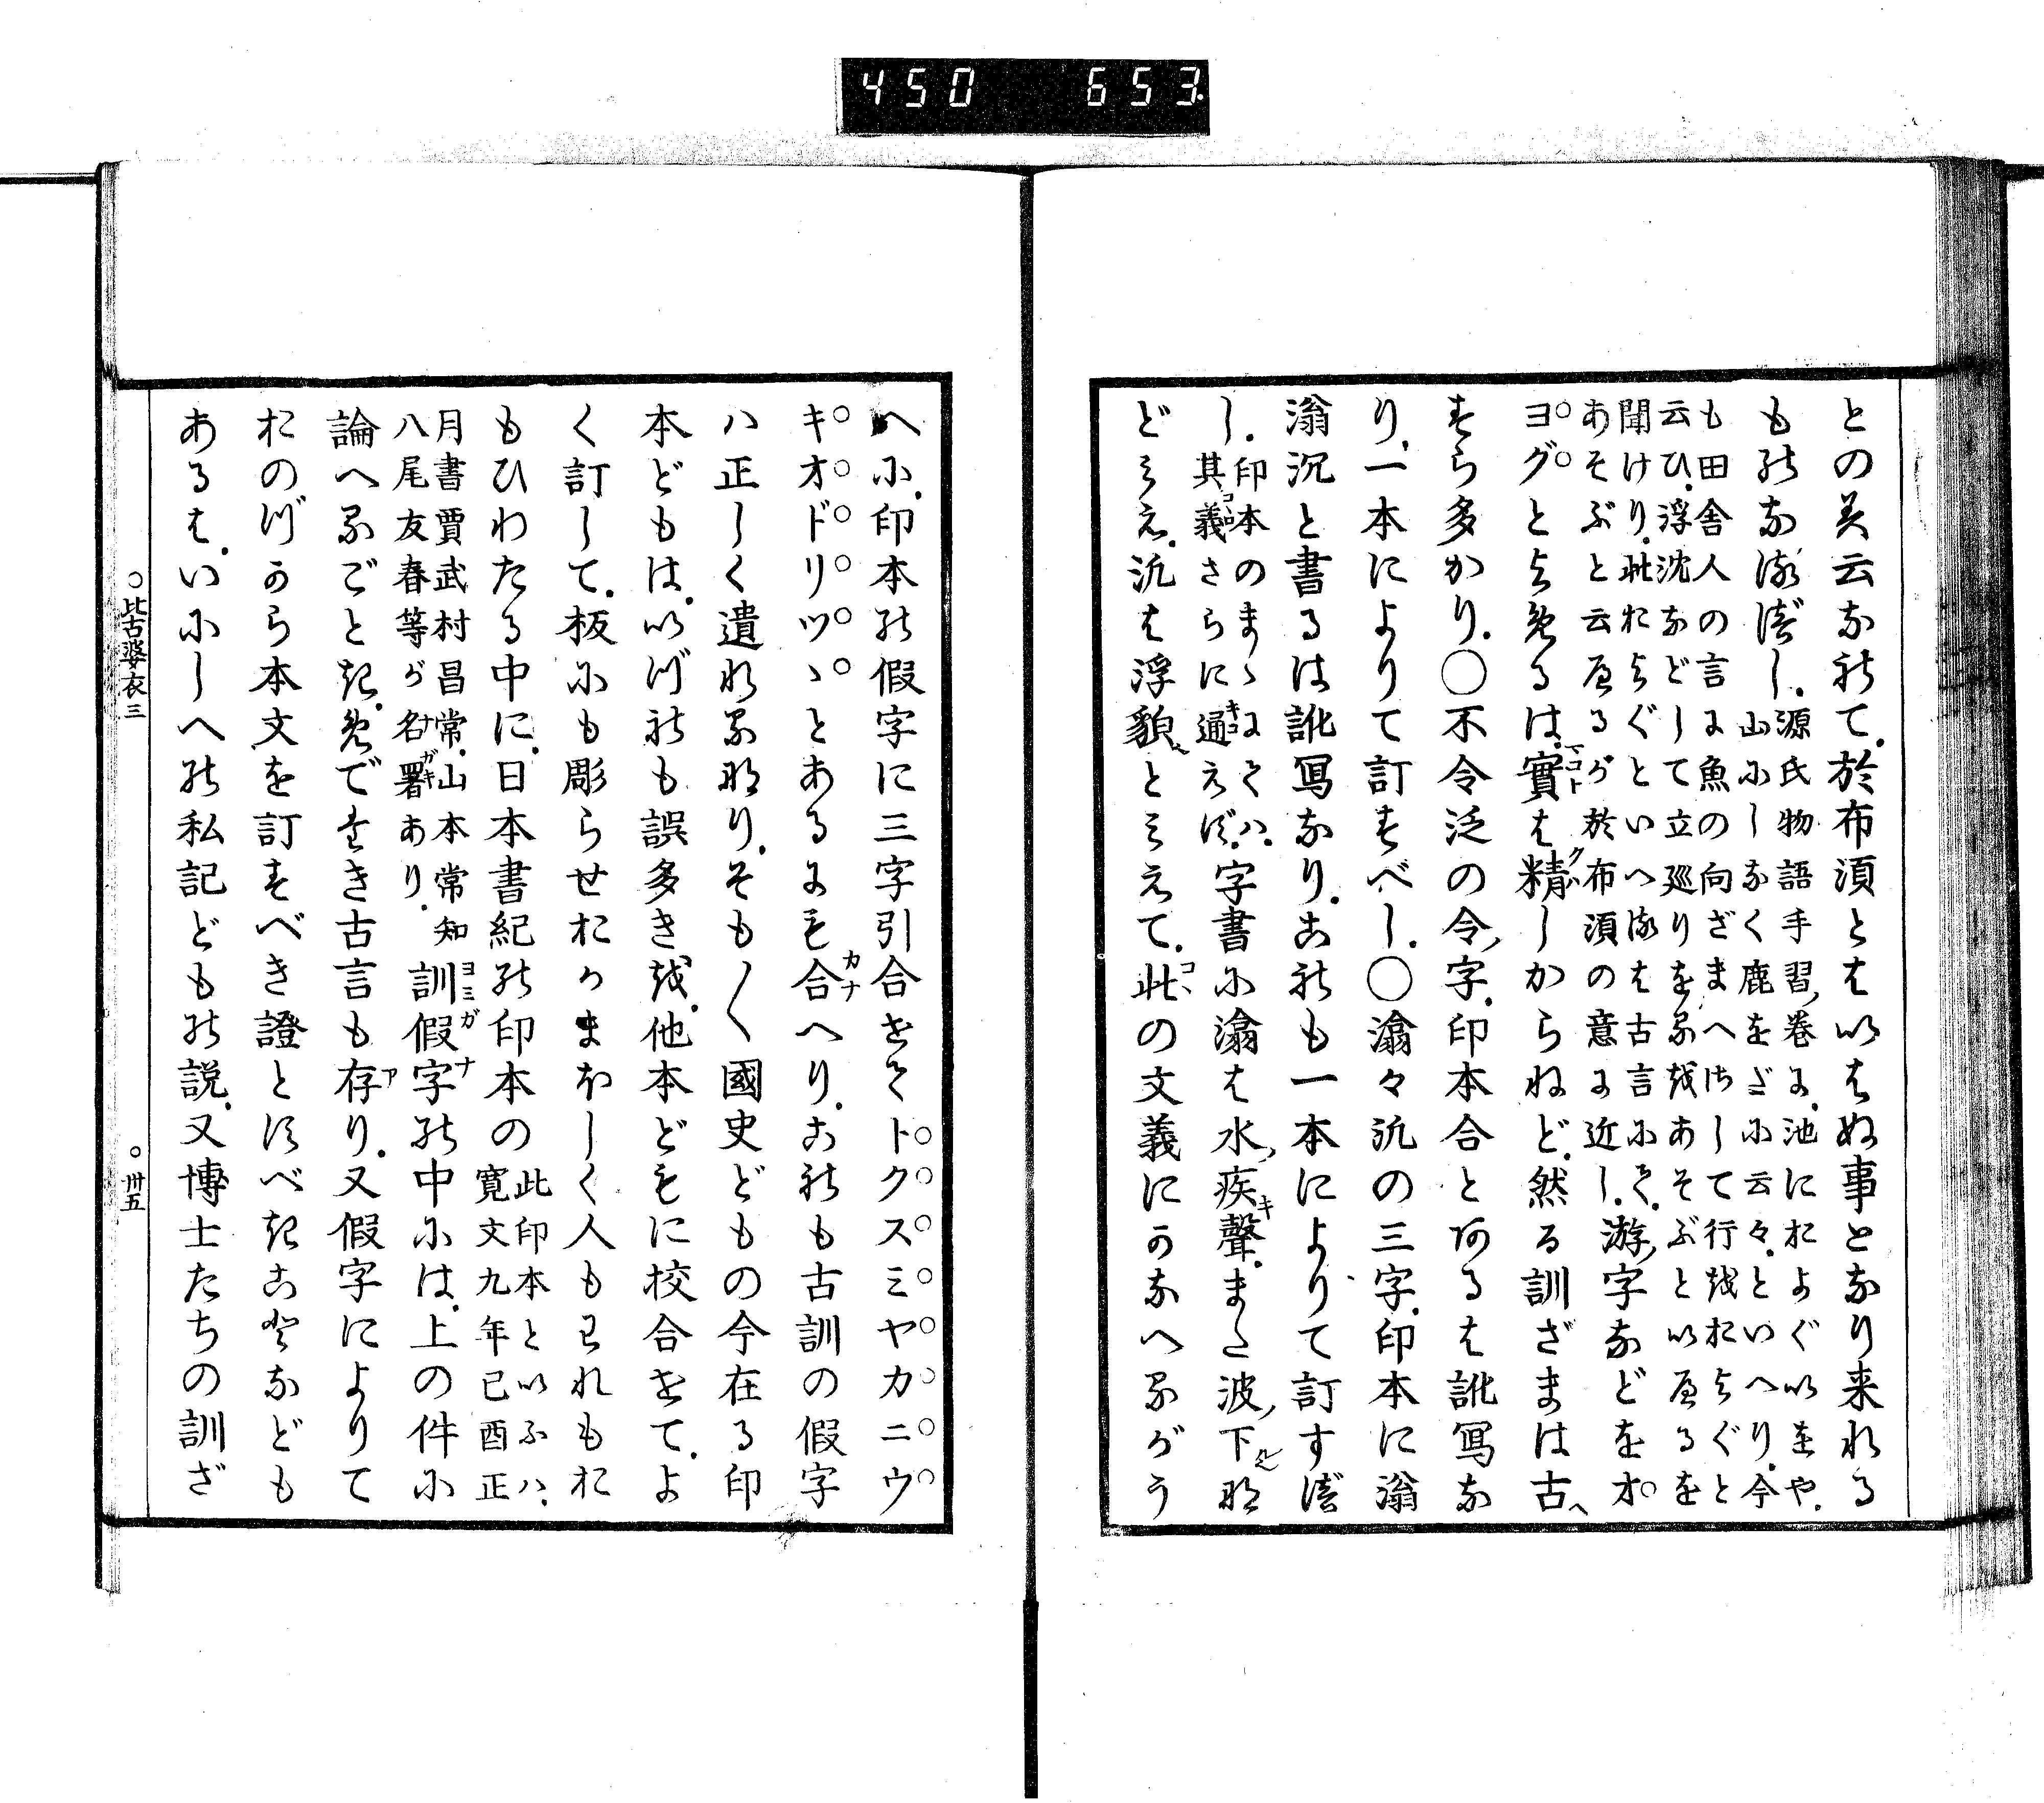 450 653
とのみ云なれて、於布須とはいはぬ事となり来れる
ものなるべし、源氏物語手習巻に、池におよぐいをや、
山になく鹿をだに云々、といへり、今
も田舎人の言に魚の向ざまへさして行をおよぐと
云ひ、浮沈などして立廻りをるをあそぶといへるを
聞けり、此およぐといへるは古言にて、
あそぶと云へるが於布須の意に近し、游字などをオ
ヨグとよめるは、實は精しからねど、然る訓ざまは古
すら多かり、〇不令泛の令字、印本合とあるは訛写な
り、一本によりて訂すべし、〇滃々沉の三字、印本に滃
滃沉と書るは訛写なり、これも一本によりて訂すべ
し、印本のまゝにては、
其義さらに通えず、字書に滃は水疾聲、また波下貌
どみえ、沉は浮貌とみえて、此の文義にかなへるがう
へに、印本の假字に三字引合せてトクスミヤカニウ
キオドリツヽとあるにも合へり、これも古訓の假字
ハ正しく遺れるなり、そも〳〵國史どもの今在る印
本どもは、いづれも誤多きを、他本どもに校合せて、よ
く訂して、板にも彫らせおかまほしく人もわれもお
もひわたる中に、日本書紀の印本の此印本といふハ、
寛文九年己酉正
月書賈武村昌常、山本常知
八尾友春等が名署あり、訓假字の中には、上の件に
論へるごとき、めでたき古言も存り、又假字によりて
おのづから本文を訂すべき證とすべきことなども
あるは、いにしへの私記どもの説、又博士たちの訓ざ
〇比古婆衣三
〇卅五